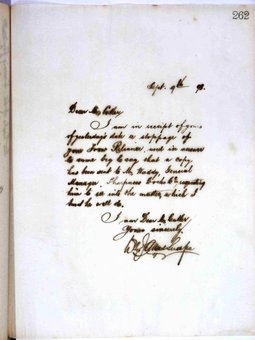 262
Sept. 9th 93.
Dear Mr Cullen
I am in receipt of yours
of yesterday's date a stoppage of
your Iron Reliance, and in answer
to same beg to say that a copy
has been sent to Mr. Waddy General
Manager, Sharpness Docks Co. requesting
him to see into the matter, which I
trust he will do.
I am Dear Mr Cullen
Yours sincerely